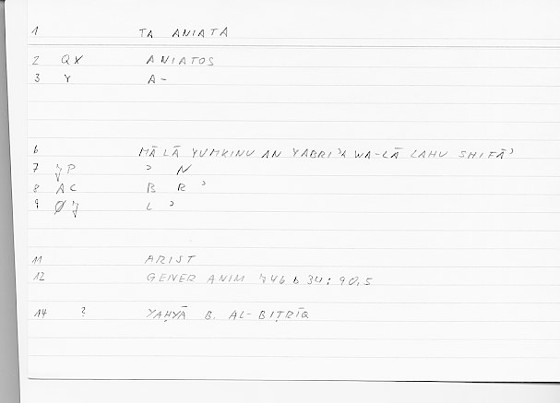 1 TA ANIATA
2 QX ANIATOS
3 Y A-
6 MĀ LĀ YUMKINU AN YABRI'A WA-LĀ LAHU SHIFĀ'
7 P ' N
8 AC B R '
9 L '
11 ARIST
12 GENER ANIM 746 b 34: 90.5
14 ? YAḤYĀ B. AL-BIṬRĪQ